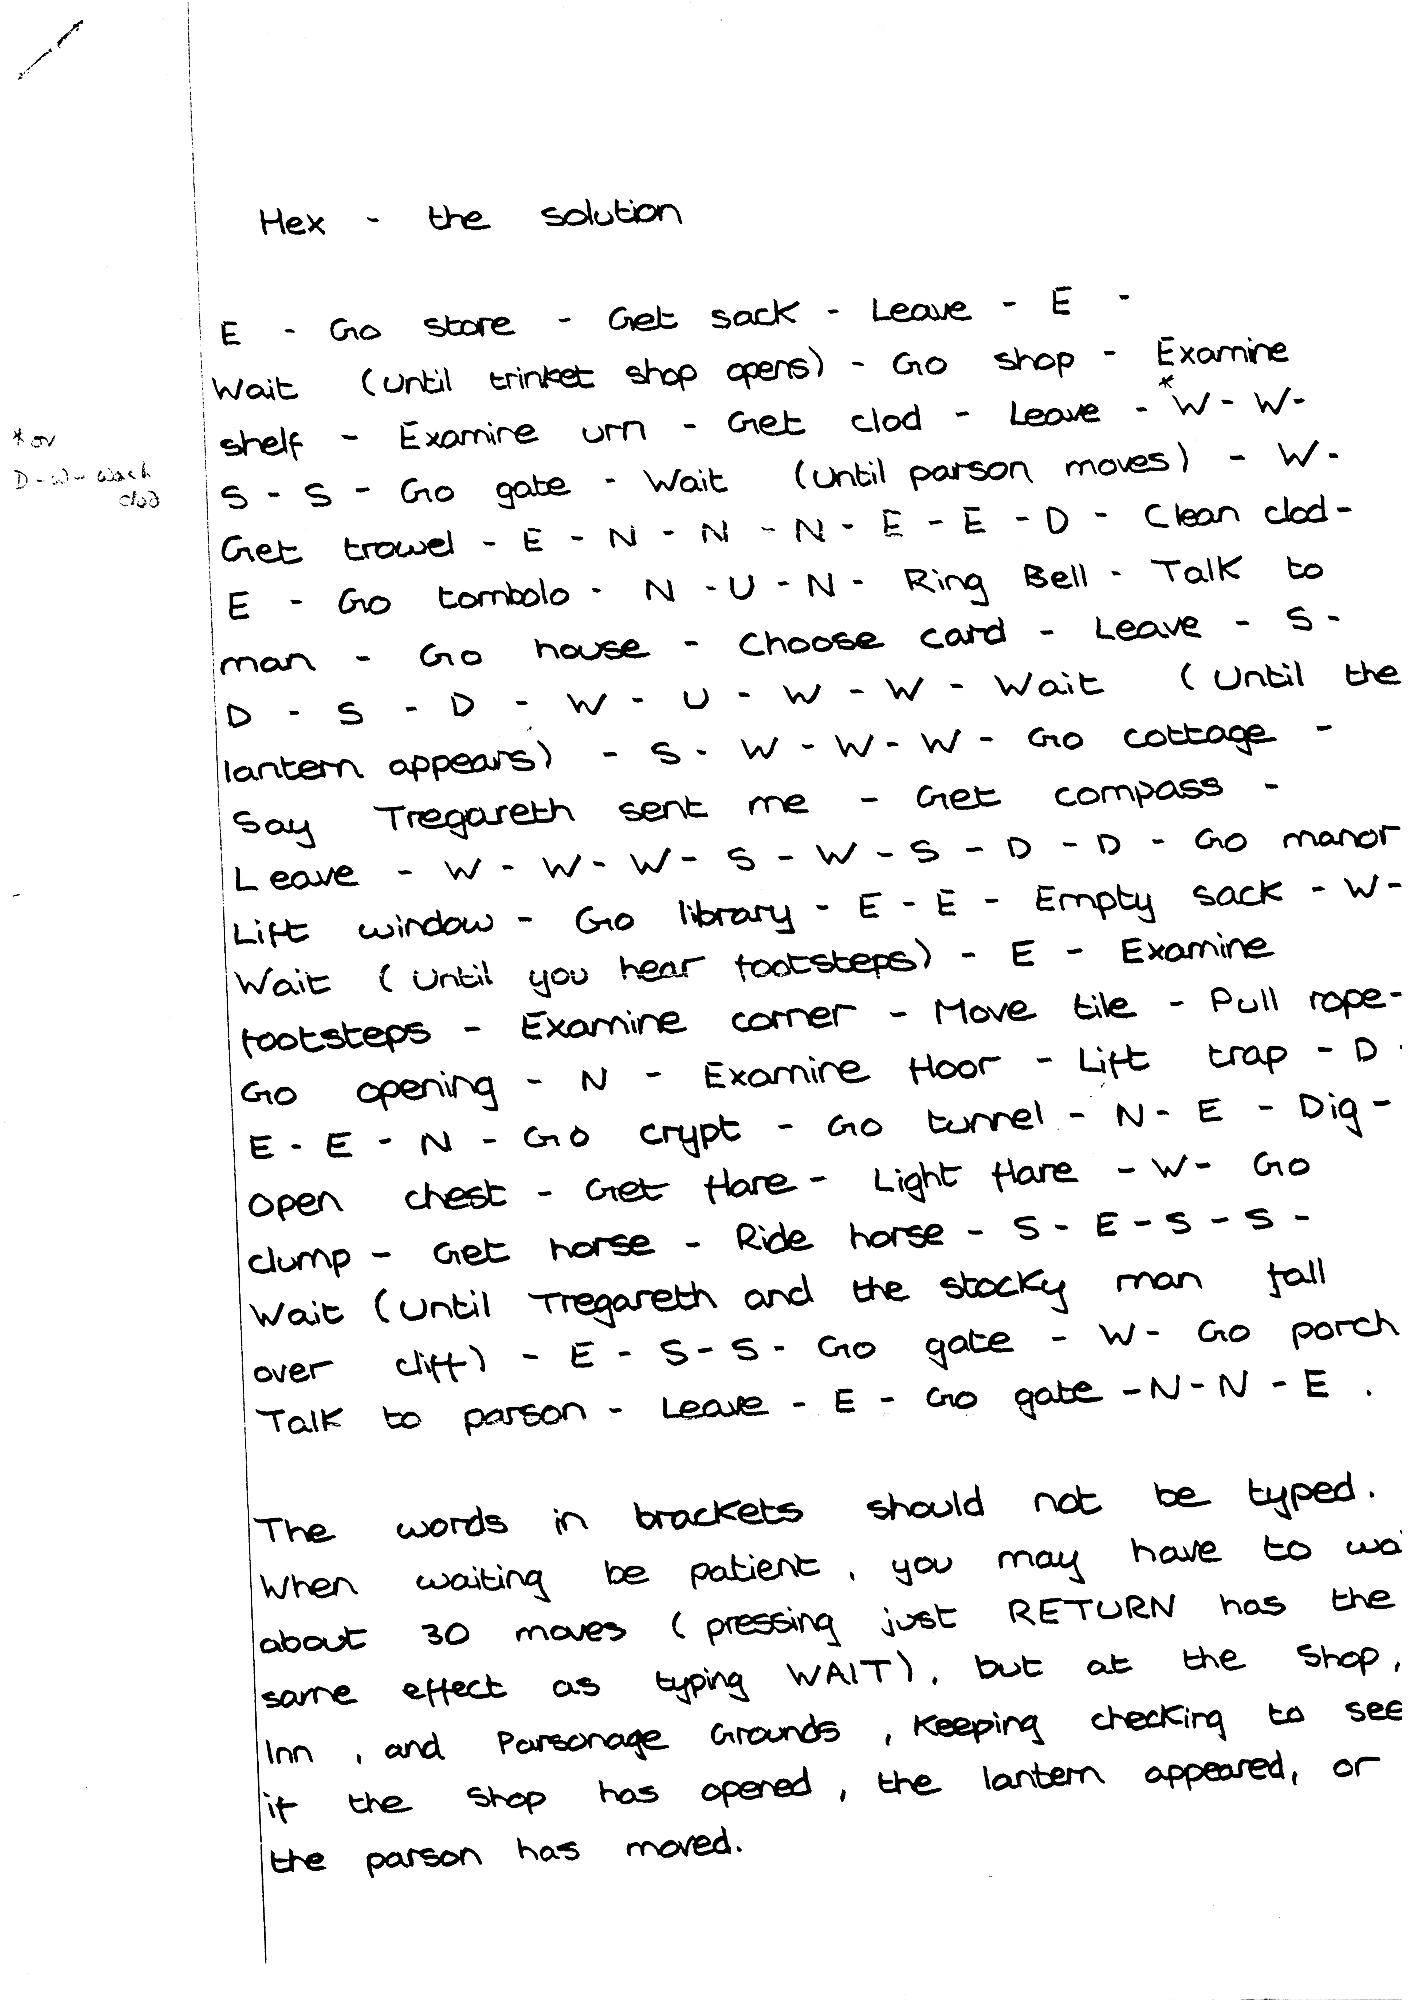 Hex - the solution
E - Go store - Get sack - Leave - E -
Wait (until trinket shop opens) - Go shop - Examine
shelf - Examine urn - Get clod - Leave - *W - W-
* or
D - W - wash
clod
S - S - Go gate - Wait (until parson moves) - W-
Get trowel - E - N - N - N - E - E - D - Clean clod-
E - Go tombolo - N - U - N - Ring Bell - Talk to
man - Go house - Choose card - Leave - S -
D - S - D - W - U - W - W - Wait (until the
lantern appears) - S - W - W - W - Go cottage -
Say Tregareth sent me - Get compass -
Leave - W - W - W - S - W - S - D - D - Go manor
Lift window - Go library - E - E - Empty sack - W-
Wait (until you hear footsteps) - E - Examine
footsteps - Examine corner - Move tile - Pull rope-
Go opening - N - Examine floor - Lift trap - D -
E - E - N - Go crypt - Go tunnel - N - E - Dig -
Open chest - Get flare - Light flare - W - Go
clump - Get horse - Ride horse - S - E - S - S -
Wait (until Tregareth and the stocky man fall
over cliff) - E - S - S - Go gate - W - Go porch
Talk to parson - Leave - E - Go gate - N - N - E .
The words in brackets should not be typed.
When waiting be patient, you may have to wai
about 30 moves (pressing just RETURN has the
same effect as typing WAIT), but at the Shop,
Inn , and Parsonage Grounds , keeping checking to see
if the shop has opened , the lantern appeared, or
the parson has moved.